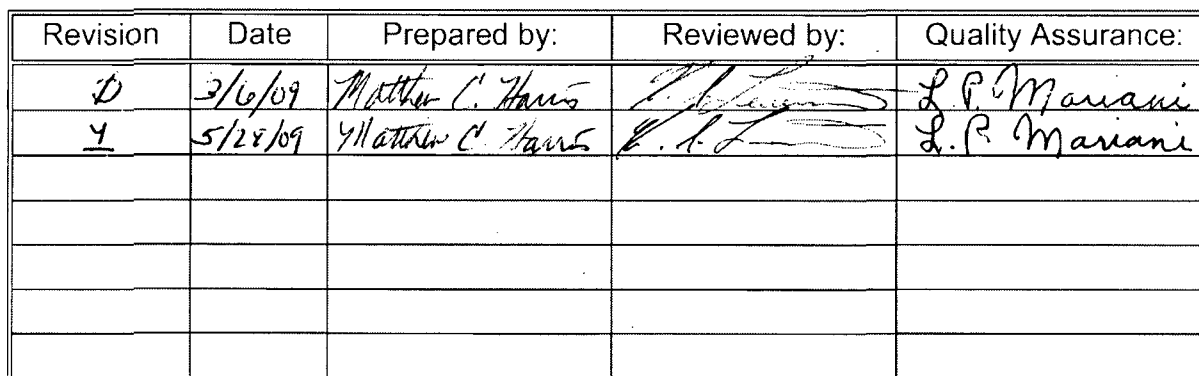 Revision Date Prepared by: Reviewed by: Quality Assurance:
3/6/09 Matthew C. Harris L. P. Mariani
5/28/09 Matthew C. Harris L. P. Mariani